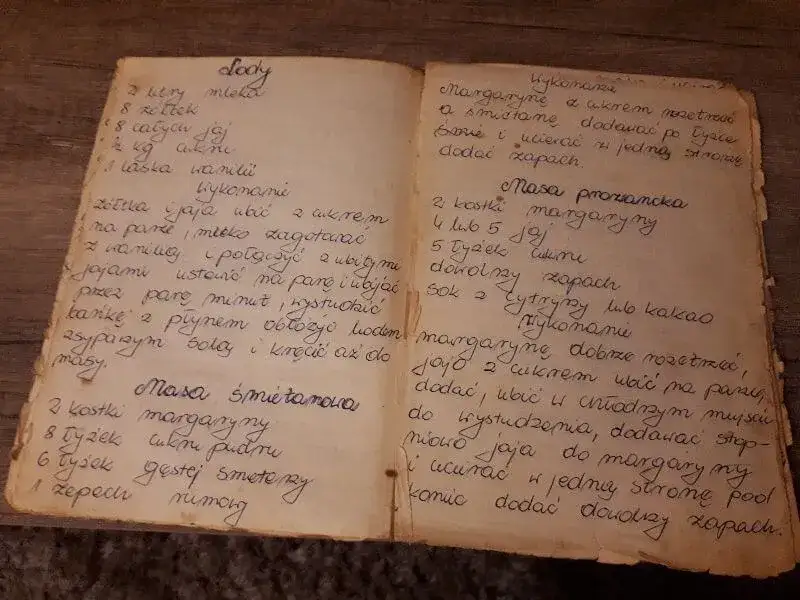 Lody
2 litry mleka
8 żółtek
8 całych jaj
½ kg cukru
1 laska wanilii
Wykonanie
żółtka i jaja ubić z cukrem
na parze, mleko zagotować
z wanilią i połączyć z ubitymi
jajami ustawić na parę i ubijać
przez parę minut, wystudzić
bańkę z płynem obłożyć lodem
zsypanym solą i kręcić aż do
masy.
Masa śmietanowa
2 kostki margaryny
8 łyżek cukru pudru
6 łyżek gęstej śmietany
1 zapach rumowy
Wykonanie
Margarynę z cukrem rozetrzeć
a śmietanę dodawać po łyżce
i ucierać w jedną stronę
dodać zapach.
Masa prozaicka
2 kostki margaryny
4 lub 5 jaj
5 łyżek cukru
dowolny zapach
sok z cytryny lub kakao
Wykonanie
margarynę dobrze rozetrzeć,
jajo z cukrem ubić na parze,
dodać, ubić w chłodnym miejscu
do wystudzenia, dodawać stop-
niowo jaja do margaryny
i ucierać w jedną stronę pod
koniec dodać dowolny zapach.